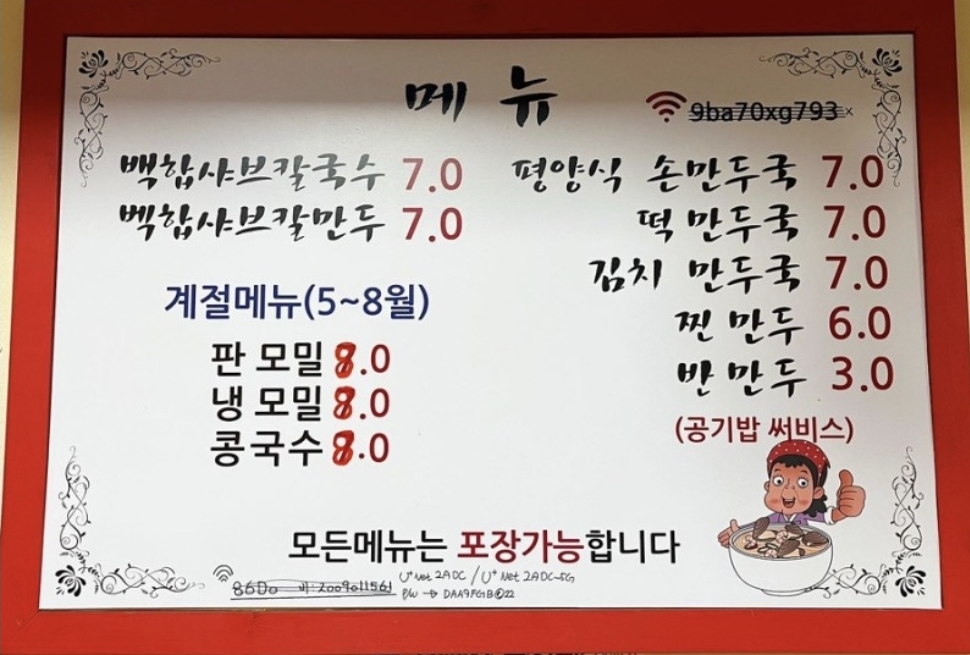 메뉴
9ba70xg793
백합샤브칼국수 7.0
벡합샤브칼만두 7.0
계절메뉴(5~8월)
판 모밀 8.0
냉 모밀 8.0
콩국수 8.0
평양식 손만두국 7.0
떡 만두국 7.0
김치 만두국 7.0
찐 만두 6.0
반 만두 3.0
(공기밥 써비스)
모든메뉴는 포장가능합니다
U+ Net 2ADC / U+ Net 2ADC_5G
86Do 비:2009011561
P/W → DAA9FGB@22